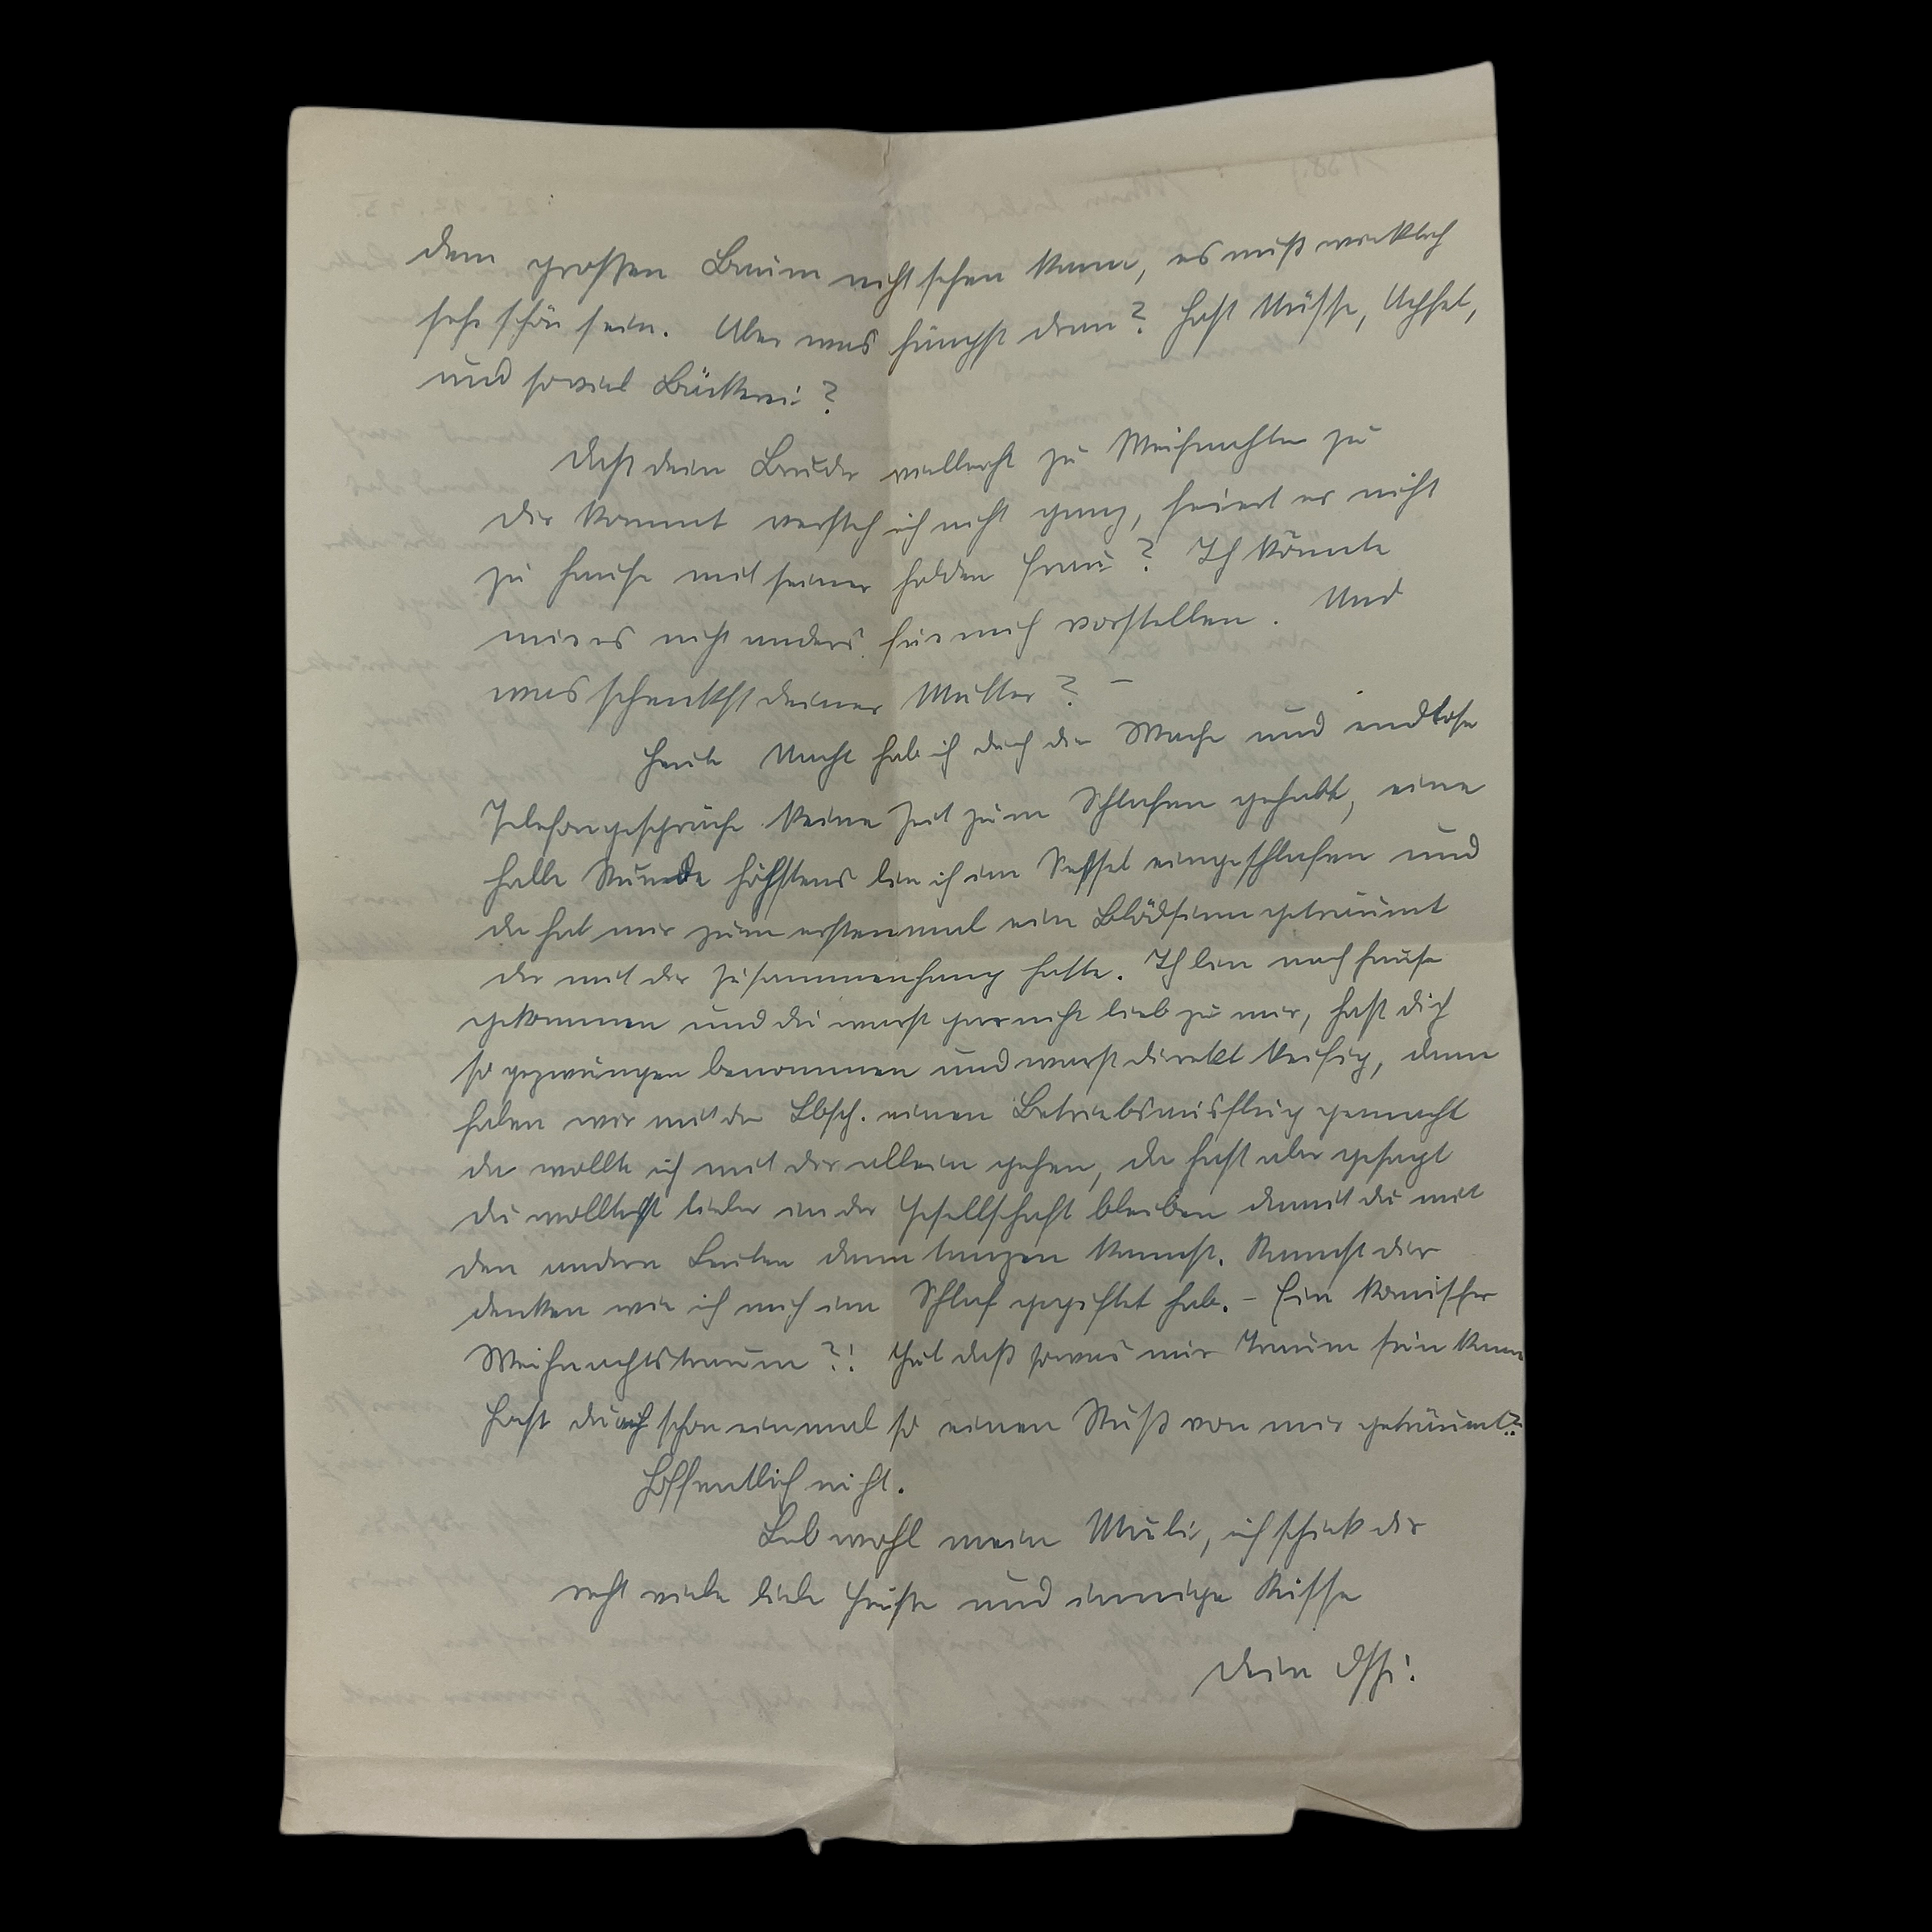 dem großen Baum nicht sehen kann, es muß wirklich
sehr schön sein. Aber was hängst dran? Hast Nüsse, Äpfel,
und soviel Bäckerei?
Daß dein Bruder vielleicht zu Weihnachten zu
dir kommt versteh ich nicht ganz, feiert er nicht
zu Hause mit seiner holden Frau? Ich könnte
mir es nicht anders für mich vorstellen. Und
was schenkst deiner Mutter? –
Heute Nacht hab ich durch die Wache und endlose
Telefongespräche keine Zeit zum Schlafen gehabt, eine
halbe Stunde höchstens bin ich im Sessel eingeschlafen und
da hat mir zum erstenmal ein Blödsinn geträumt
der mit dir Zusammenhang hatte. Ich bin nach Hause
gekommen und du warst gar nicht lieb zu mir, hast dich
so gezwungen benommen und warst direkt keifig, dann
haben wir mit der Lbsch. einen Betriebsausflug gemacht
da wollte ich mit dir allein gehen, du hast aber gesagt
du wolltest lieber in der Gesellschaft bleiben damit du mit
den andern Leuten dann tanzen kannst. Kannst dir
denken wie ich mich im Schlaf gegiftet hab. – Ein komischer
Weihnachtstraum?! Gut daß sowas nur Traum sein kann
Hast du auch schon einmal so einen Stuß von mir geträumt?
Hoffentlich nicht.
Leb wohl mein Muli, ich schick dir
recht viele liebe Grüße und innige Küsse
dein Ossi.